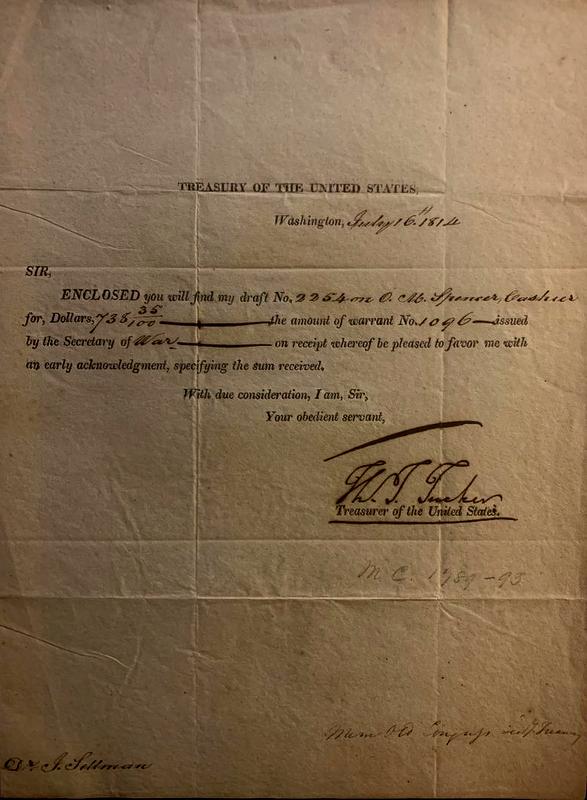 TREASURY OF THE UNITED STATES,
Washington, July 16th 1814
SIR,
ENCLOSED you will find my draft No. 2254 on O. M. Spencer, Cashier
for, Dollars, 738 35/100 the amount of warrant No. 1096 issued
by the Secretary of War on receipt whereof be pleased to favor me with
an early acknowledgment, specifying the sum received.
With due consideration, I am, Sir,
Your obedient servant,
Th. T. Tucker
Treasurer of the United States.
M C. 1789-93
Mem Old Congress
Dr. J. Sellman